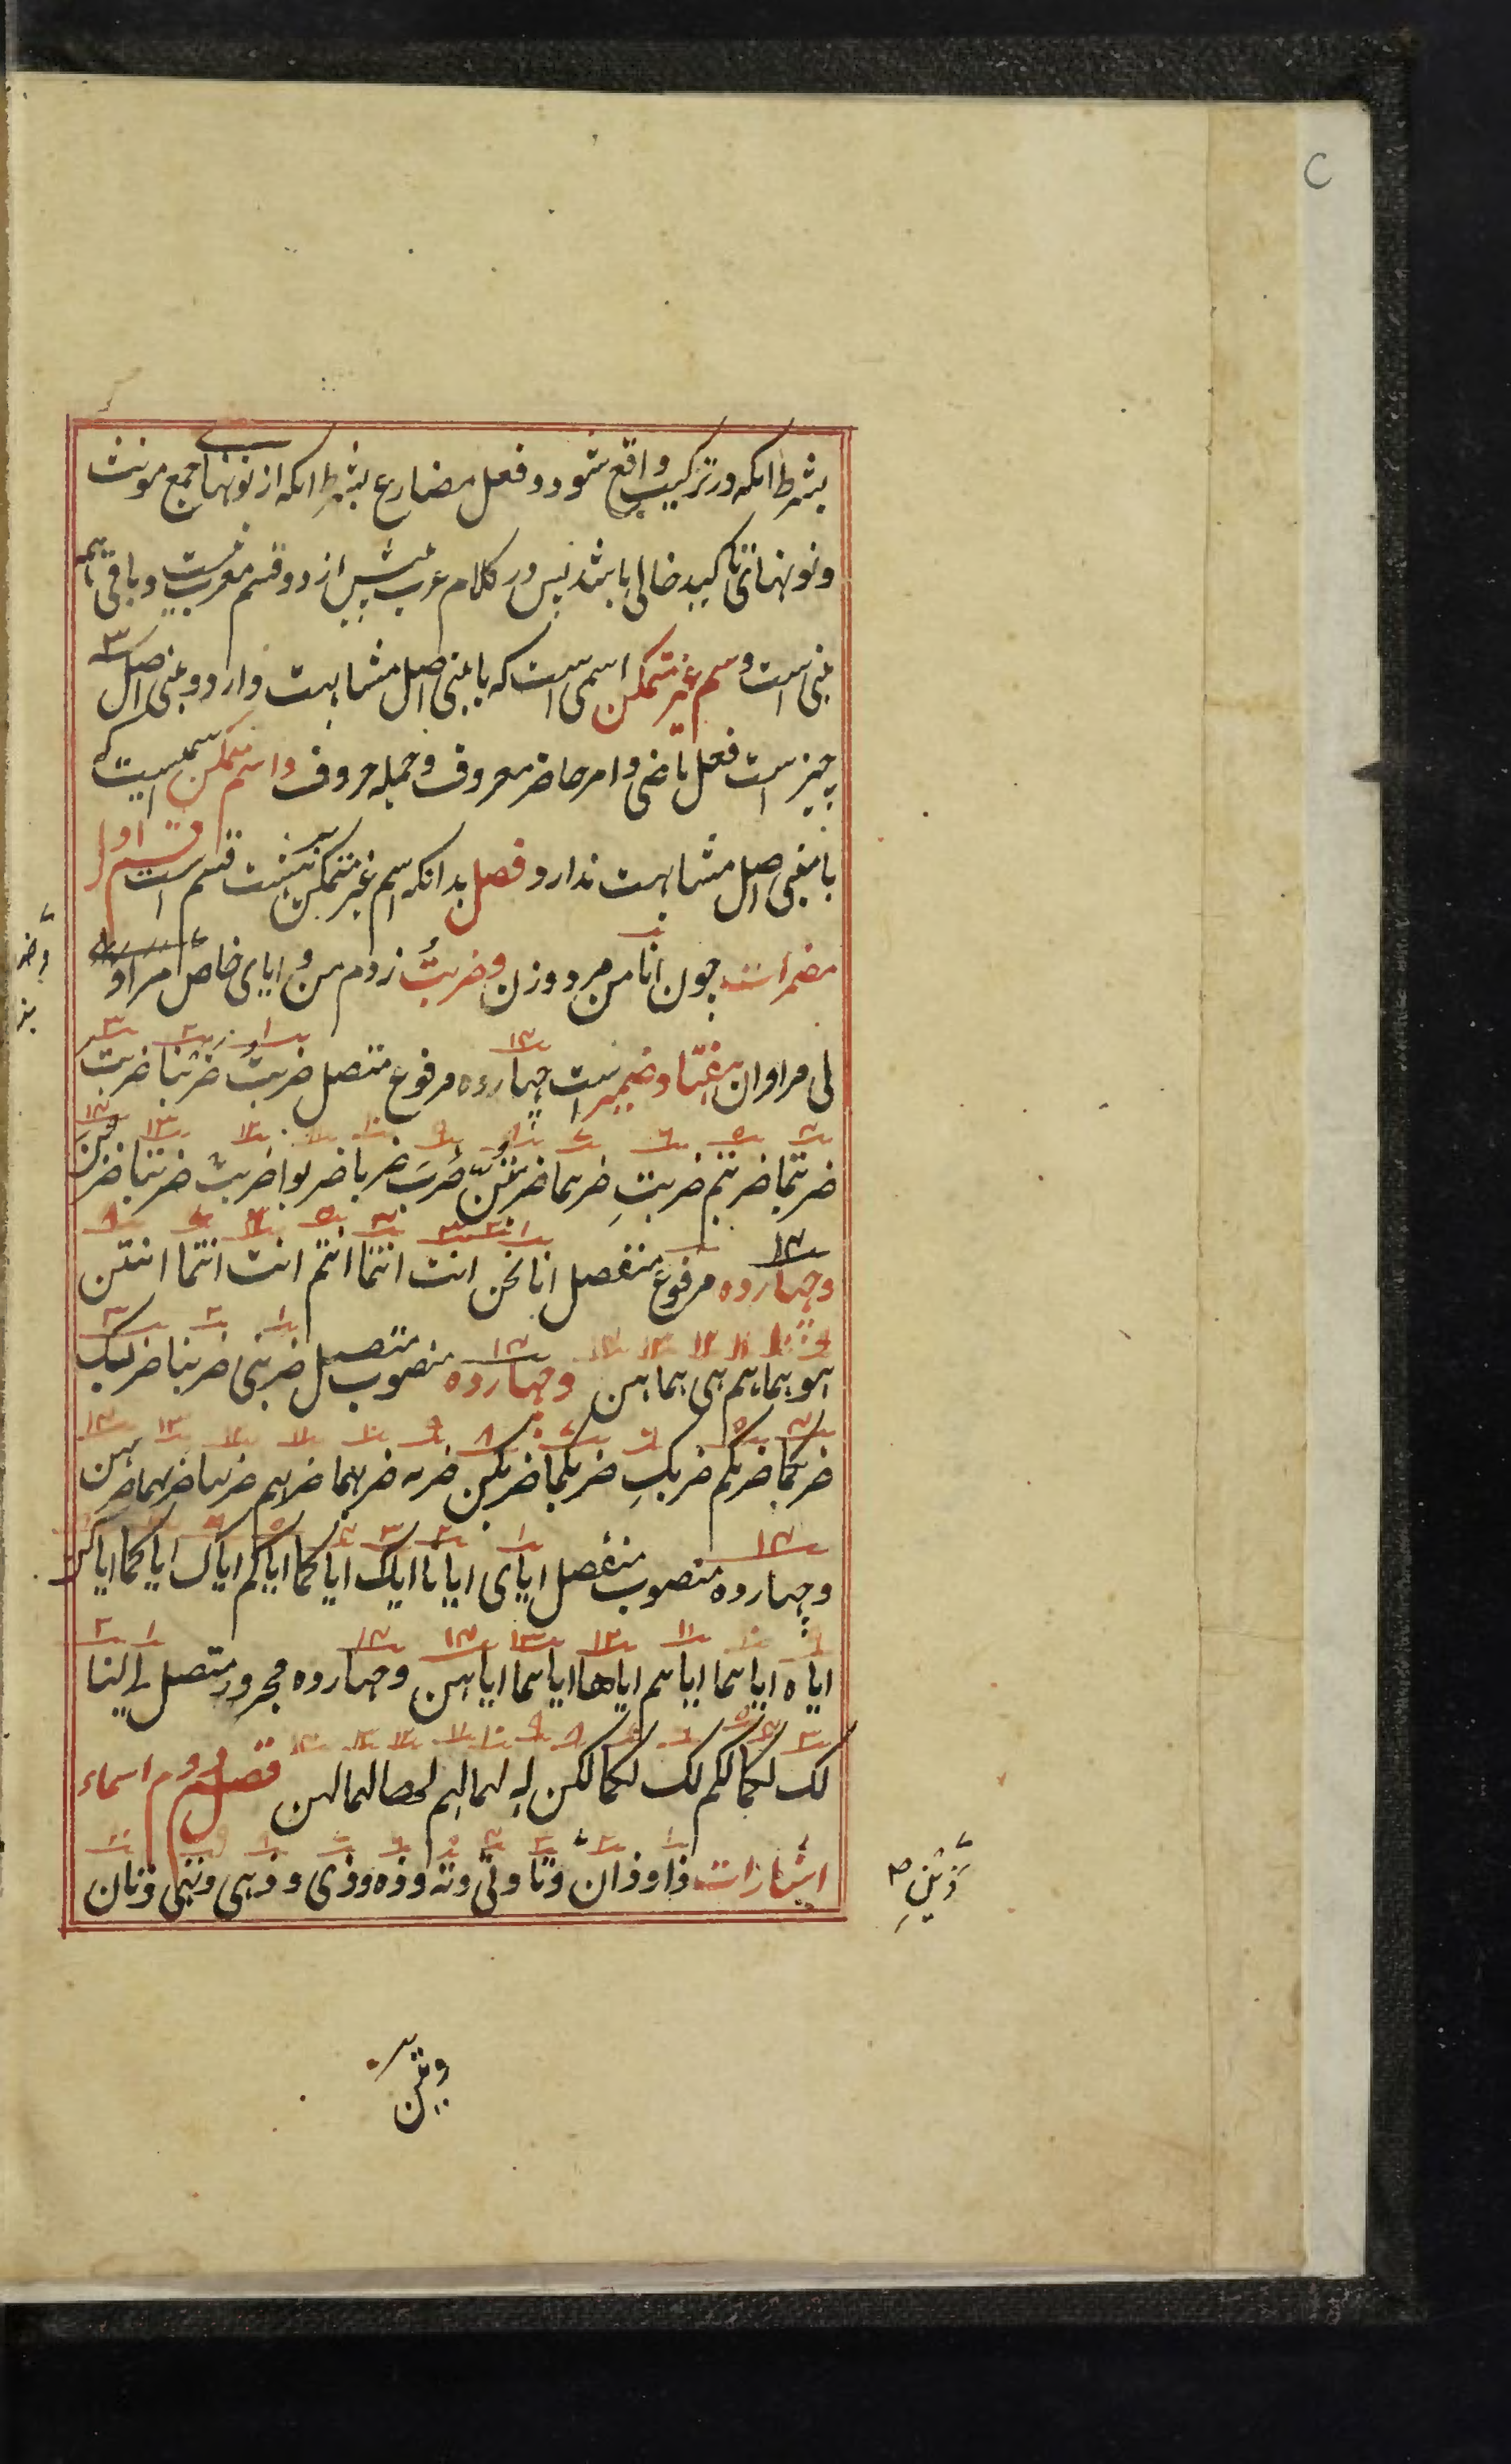 بشرط انکه در ترکیب واقع شود و فعل مضارع بشرط انکه از نونهای جمع مونث
و نونهای تاکید خالی باشد پس در کلام عرب بیش از دو قسم معرب نیست و باقی همه
مبنی است و اسم غیر متمکن اسمی است که با مبنی اصل مشابهت دارد و مبنی اصل ۳
چیز است فعل ماضی و امر حاضر معروف و جمله حروف و اسم متمکن اسمیست که
با مبنی اصل مشابهت ندارد فصل بدانکه اسم غیر متمکن بر هشت قسم است قسم اول
مضمرات چون انا من مرد و زن و ضربتُ زدم من و ایای خاص مرا و
لی مرا و ان هفتاد ضمیر است چهارده مرفوع متصل ضربتُ ضربنا ضربتَ
ضربتما ضربتم ضربتِ ضربتما ضربتنّ ضربَ ضربا ضربوا ضربت ضربتا ضربن
و چهارده مرفوع منفصل انا نحن انت انتما انتم انت انتما انتن
هو هما هم هی هما هن و چهارده منصوب متصل ضربنی ضربنا ضربک
ضربکما ضربکم ضربکِ ضربکما ضربکن ضربه ضربهما ضربهم ضربها ضربهما ضربهن
و چهارده منصوب منفصل ایای ایانا ایاک ایاکما ایاکم ایاک ایاکما ایاکن
ایاه ایاهما ایاهم ایاها ایاهما ایاهن و چهارده مجرور متصل لی لنا
لک لکما لکم لک لکما لکن له لهما لهم لها لهما لهن فصل دوم اسماء
اشارات ذا و ذان و تا و تی و ته و ذه و ذی و ذهی و تهی و تان
و ذین
وتین